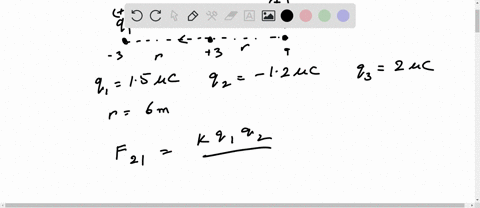 (+
q₁
-3 r +3 r
q₁ = 1.5 μC q₂ = -1.2 μC q₃ = 2 μC
r = 6 m
F₂₁ = K q₁ q₂